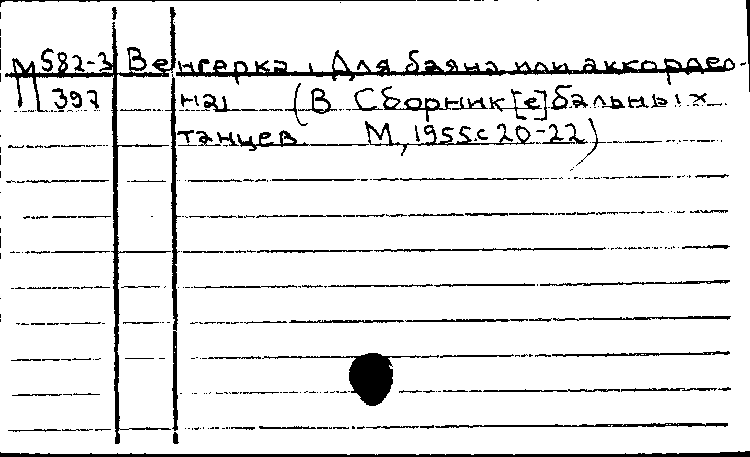 М 582-3 Венгерка, Для баяна или аккордео-
397 на, (В Сборник[е] бальных
танцев. М., 1955. с 20-22)